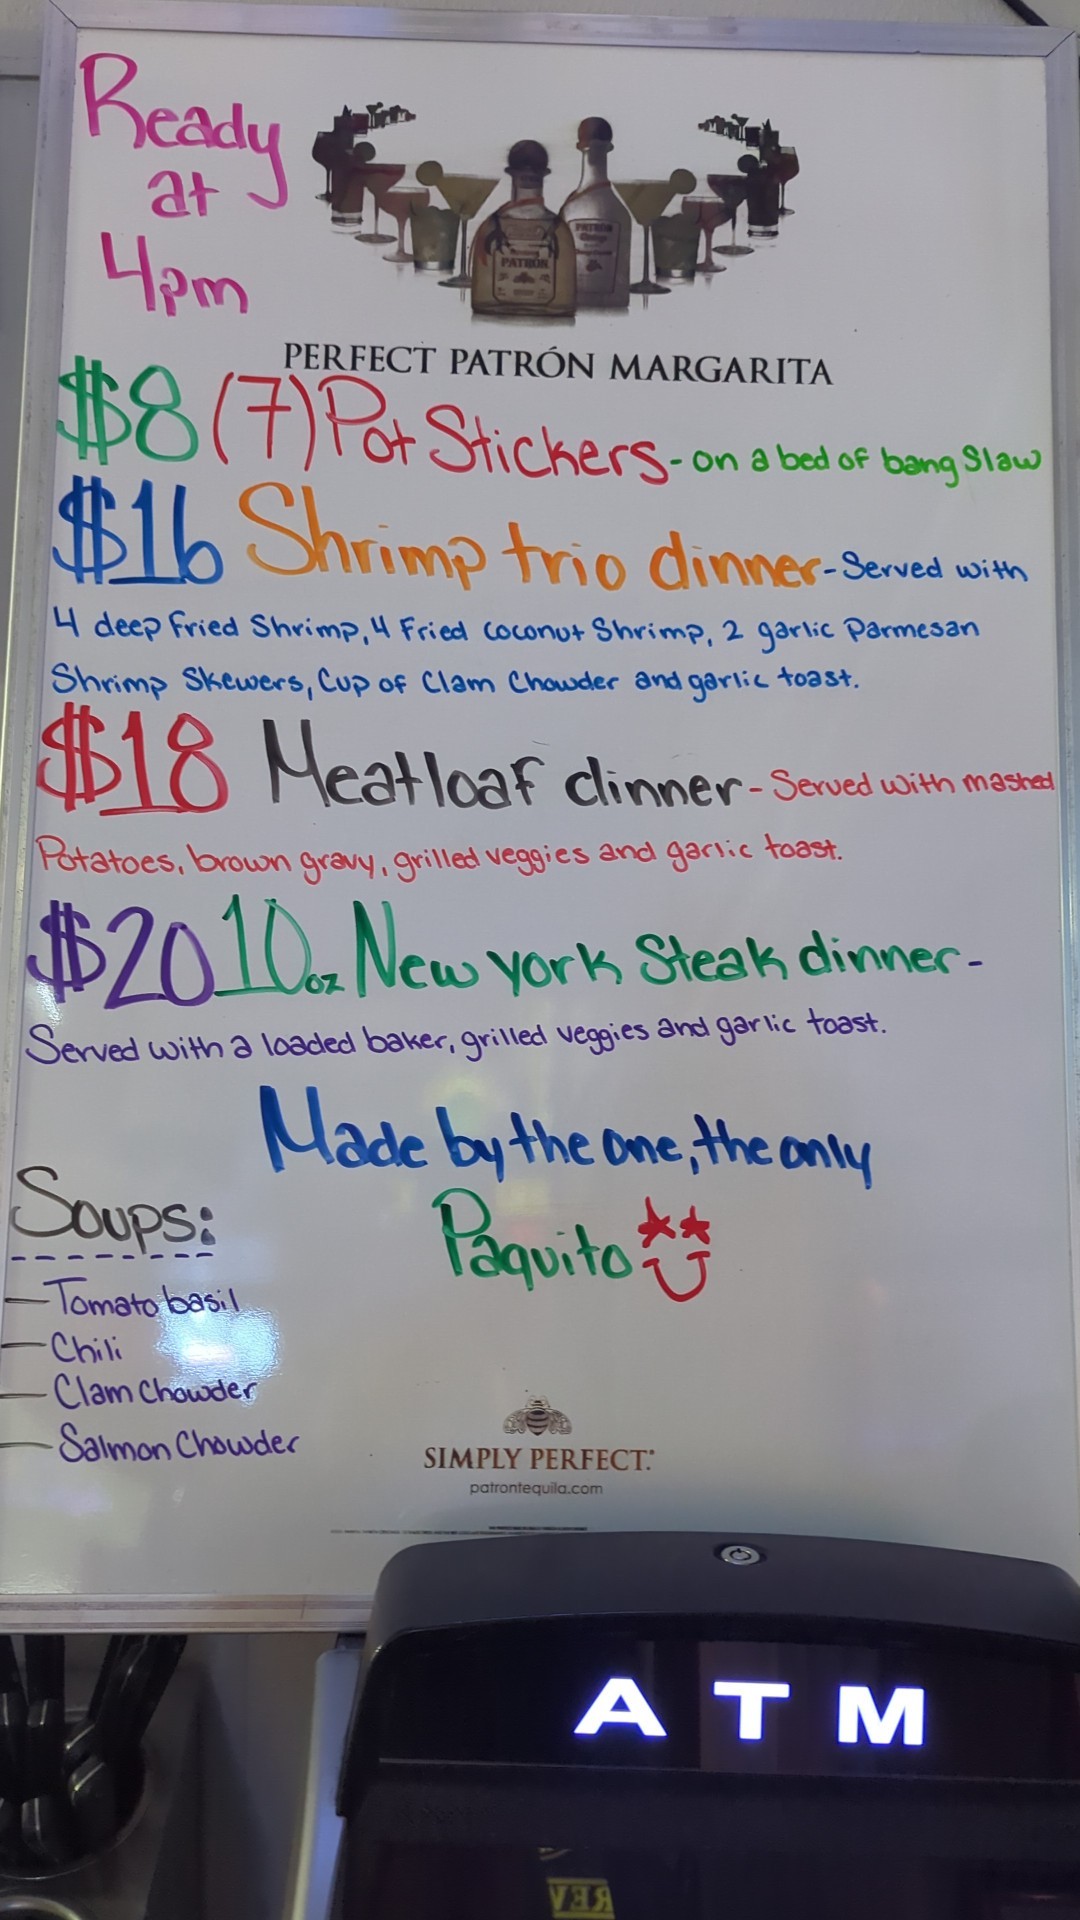 Ready
at
4pm
PATRÓN
PATRÓN
PERFECT PATRÓN MARGARITA
$8 (7) Pot Stickers - on a bed of bang Slaw
$16 Shrimp trio dinner - Served with
4 deep Fried Shrimp, 4 Fried coconut Shrimp, 2 garlic Parmesan
Shrimp Skewers, Cup of Clam Chowder and garlic toast.
$18 Meatloaf dinner - Served with mashed
Potatoes, brown gravy, grilled veggies and garlic toast.
$20 10oz New york Steak dinner -
Served with a loaded baker, grilled veggies and garlic toast.
Made by the one, the only
Paquito
Soups:
- Tomato basil
- Chili
- Clam Chowder
- Salmon Chowder
SIMPLY PERFECT.
patrontequila.com
ATM